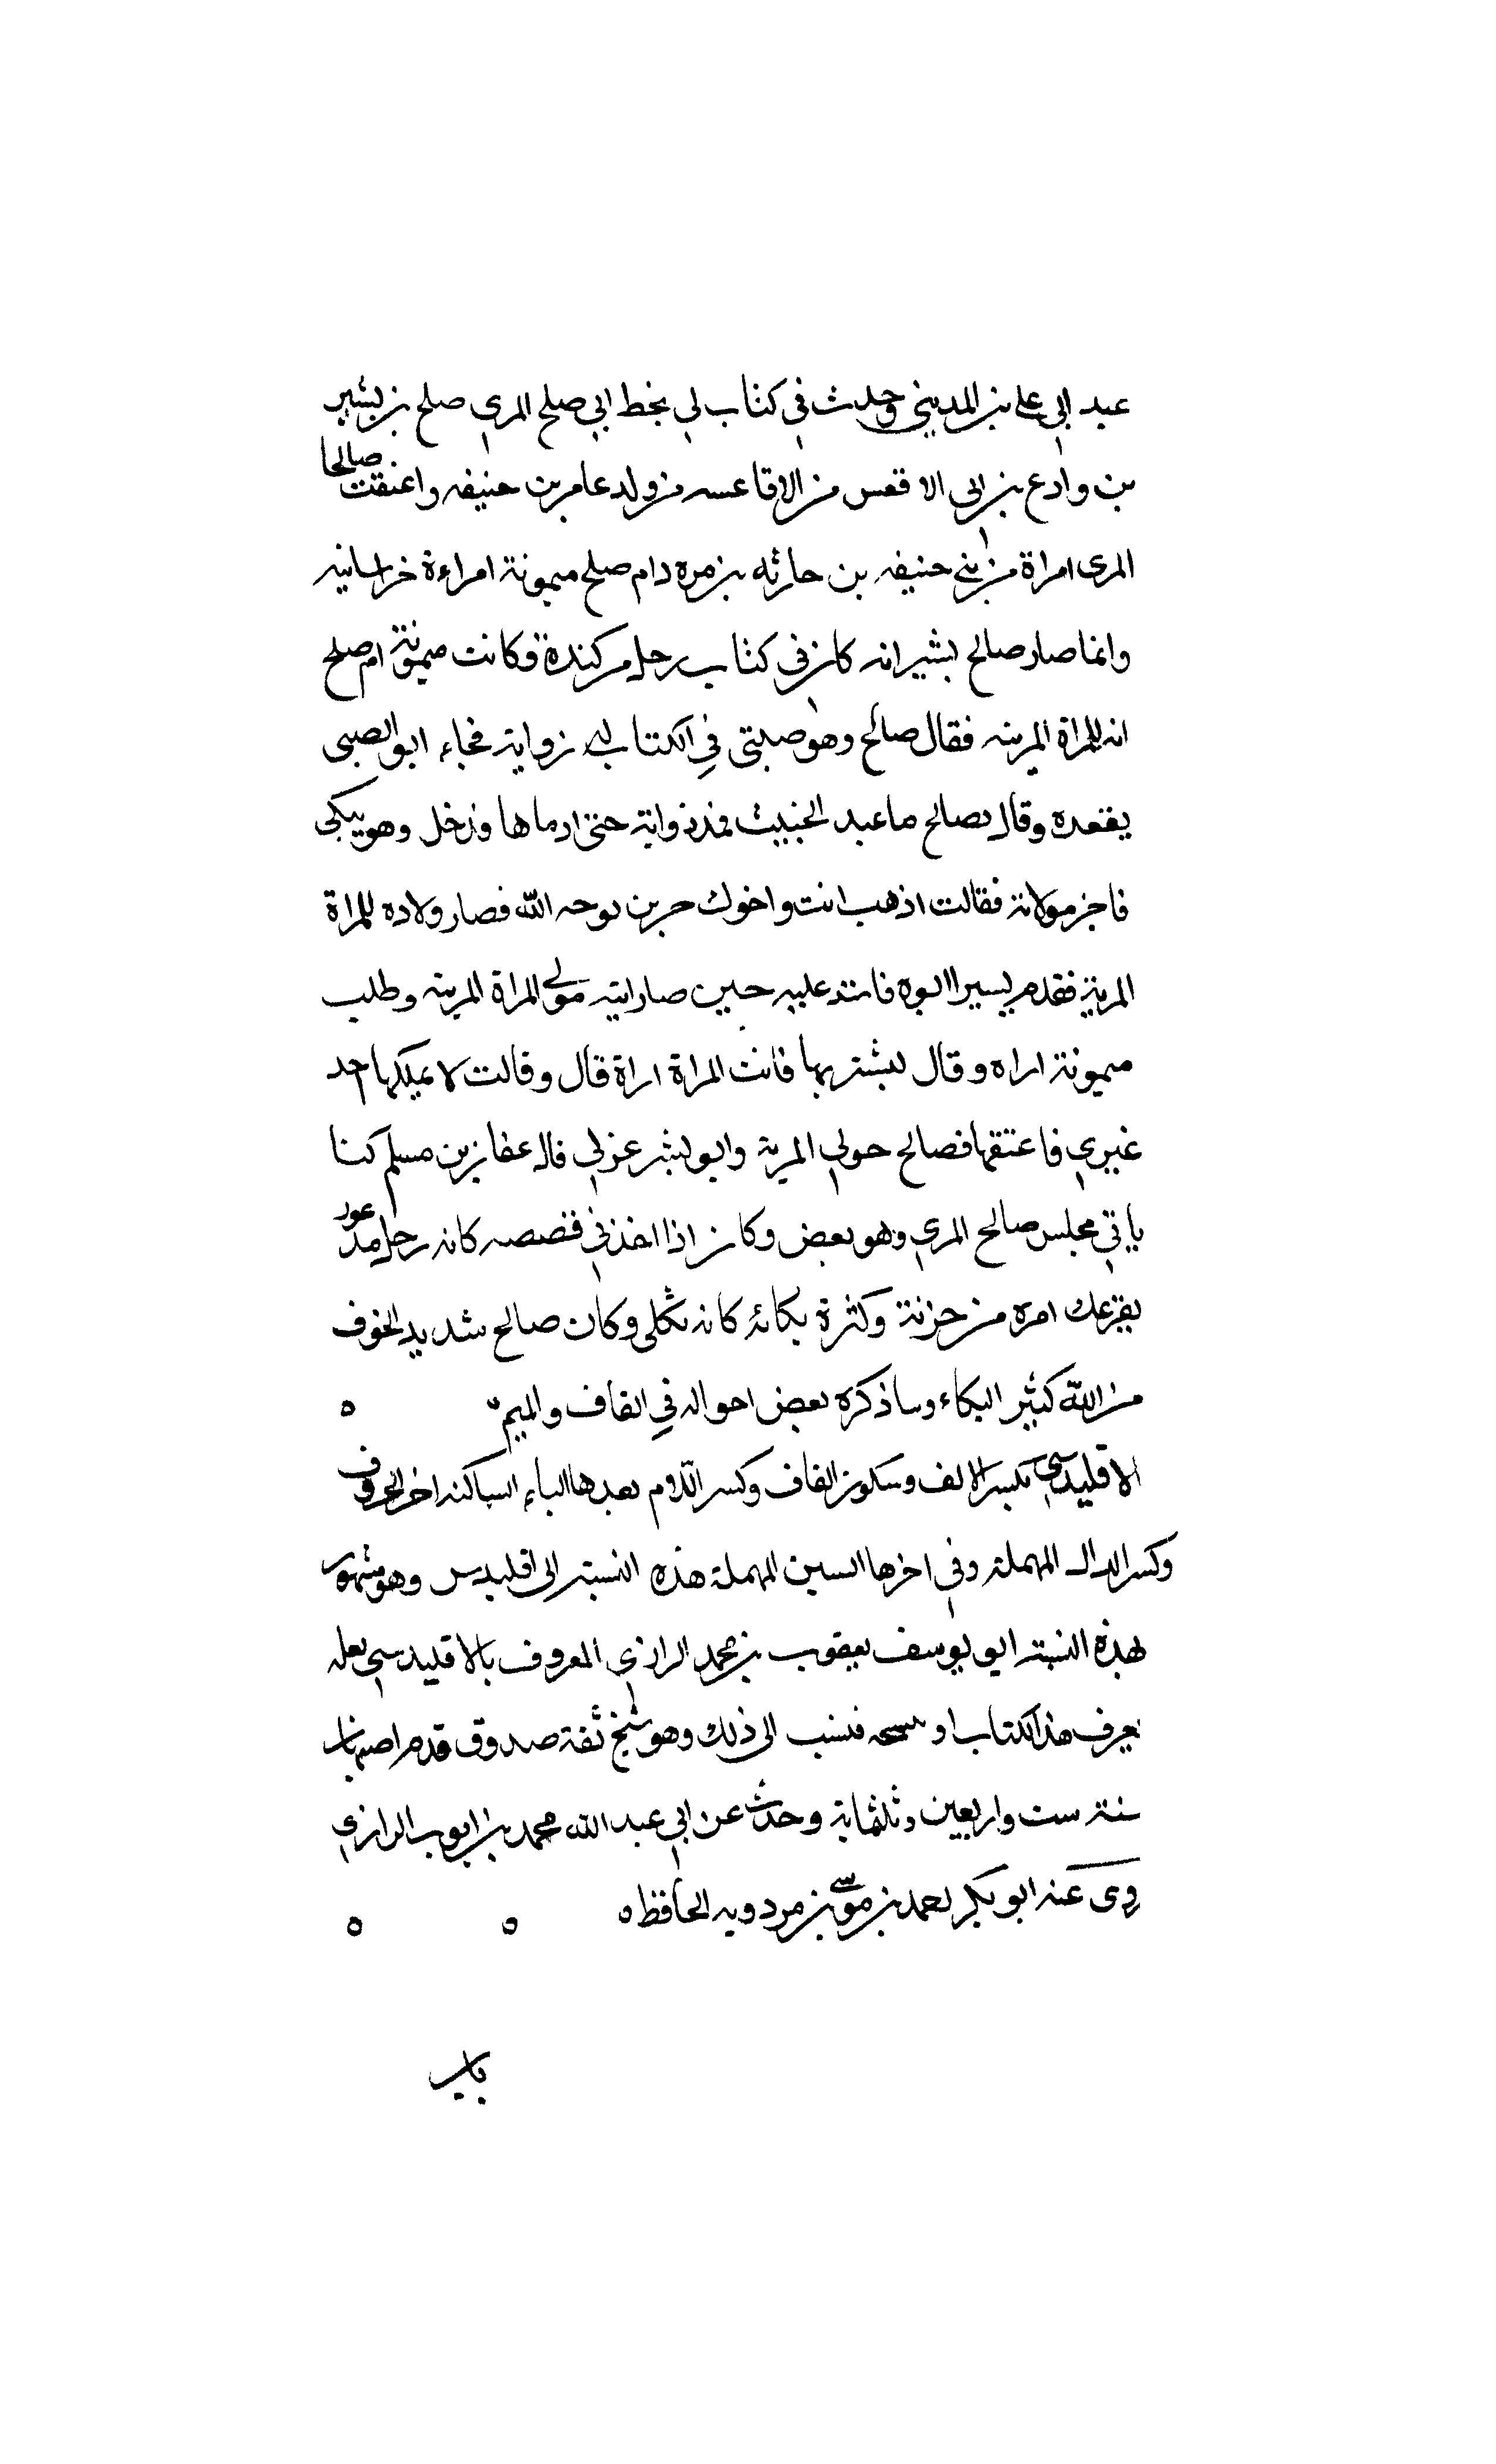 عبد ابي علي بن المديني وجدت في كتاب لي بخط ابي صلح المري صلح بن بشير
بن وادع بن ابي الاقعس من الاقاعسه من ولد عامر بن حنيفه واعتقت صالحا
المرى امراة من بني حنيفه بن حارثه بن مره دام صلح ميمونة امراءة خراسانيه
وانما صار صالح بشير انه كان في كتاب رجل من كندة وكانت ميمونة ام صلح
انه للمراة المرينه فقال صالح وهو صبتى في الكتاب له زواية فجاء ابو الصبى
يقعده وقال لصالح ما عبد الخبيث فمد زوايته حتى ادماها ودخل وهو يبكى
فاخبر مولاته فقالت اذهب انت واخوك حرين لوجه الله فصار ولاده للمراة
المرية فقدم بسيرا ابوه فاشتد عليه حين صار ابنه مولى المراة المرينه وطلب
ميمونة امراه وقال ليشتريها فانت المراة اراة قال وقالت لا يملكها احد
غيري فاعتقها فصالح حولي المرية وابو بشر عزلي قال عفان بن مسلم كنا
ياتي مجلس صالح المري وهو بعض وكان اذا اخذ في قصصه كانه رجل مذعور
يفزعك امره من حزنة وكثرة بكائه كانه ثكلى وكان صالح شديد الخوف
من الله كثير البكاء وساذكره بعض احواله في القاف والميم ه
الاقليدسي بكسر الالف وسكون القاف وكسر اللام بعدها الياء الساكنه اخر الحروف
وكسر الدال المهملة وفي اخرها السين المهملة هذه النسبة الى اقليدس وهو مشهور
بهذه النسبة ابو يوسف يعقوب بن محمد الرازي المعروف بالاقليدسي لعله
يعرف هذا الكتاب او نسخه فنسب الى ذلك وهو شيخ ثقة صدوق قدم اصبهان
سنة ست واربعين وثلثماية وحدث عن ابي عبد الله محمد بن ايوب الرازي
روى عنه ابو بكر احمد بن موسى بن مردويه الحافظ ه ه ه
باب